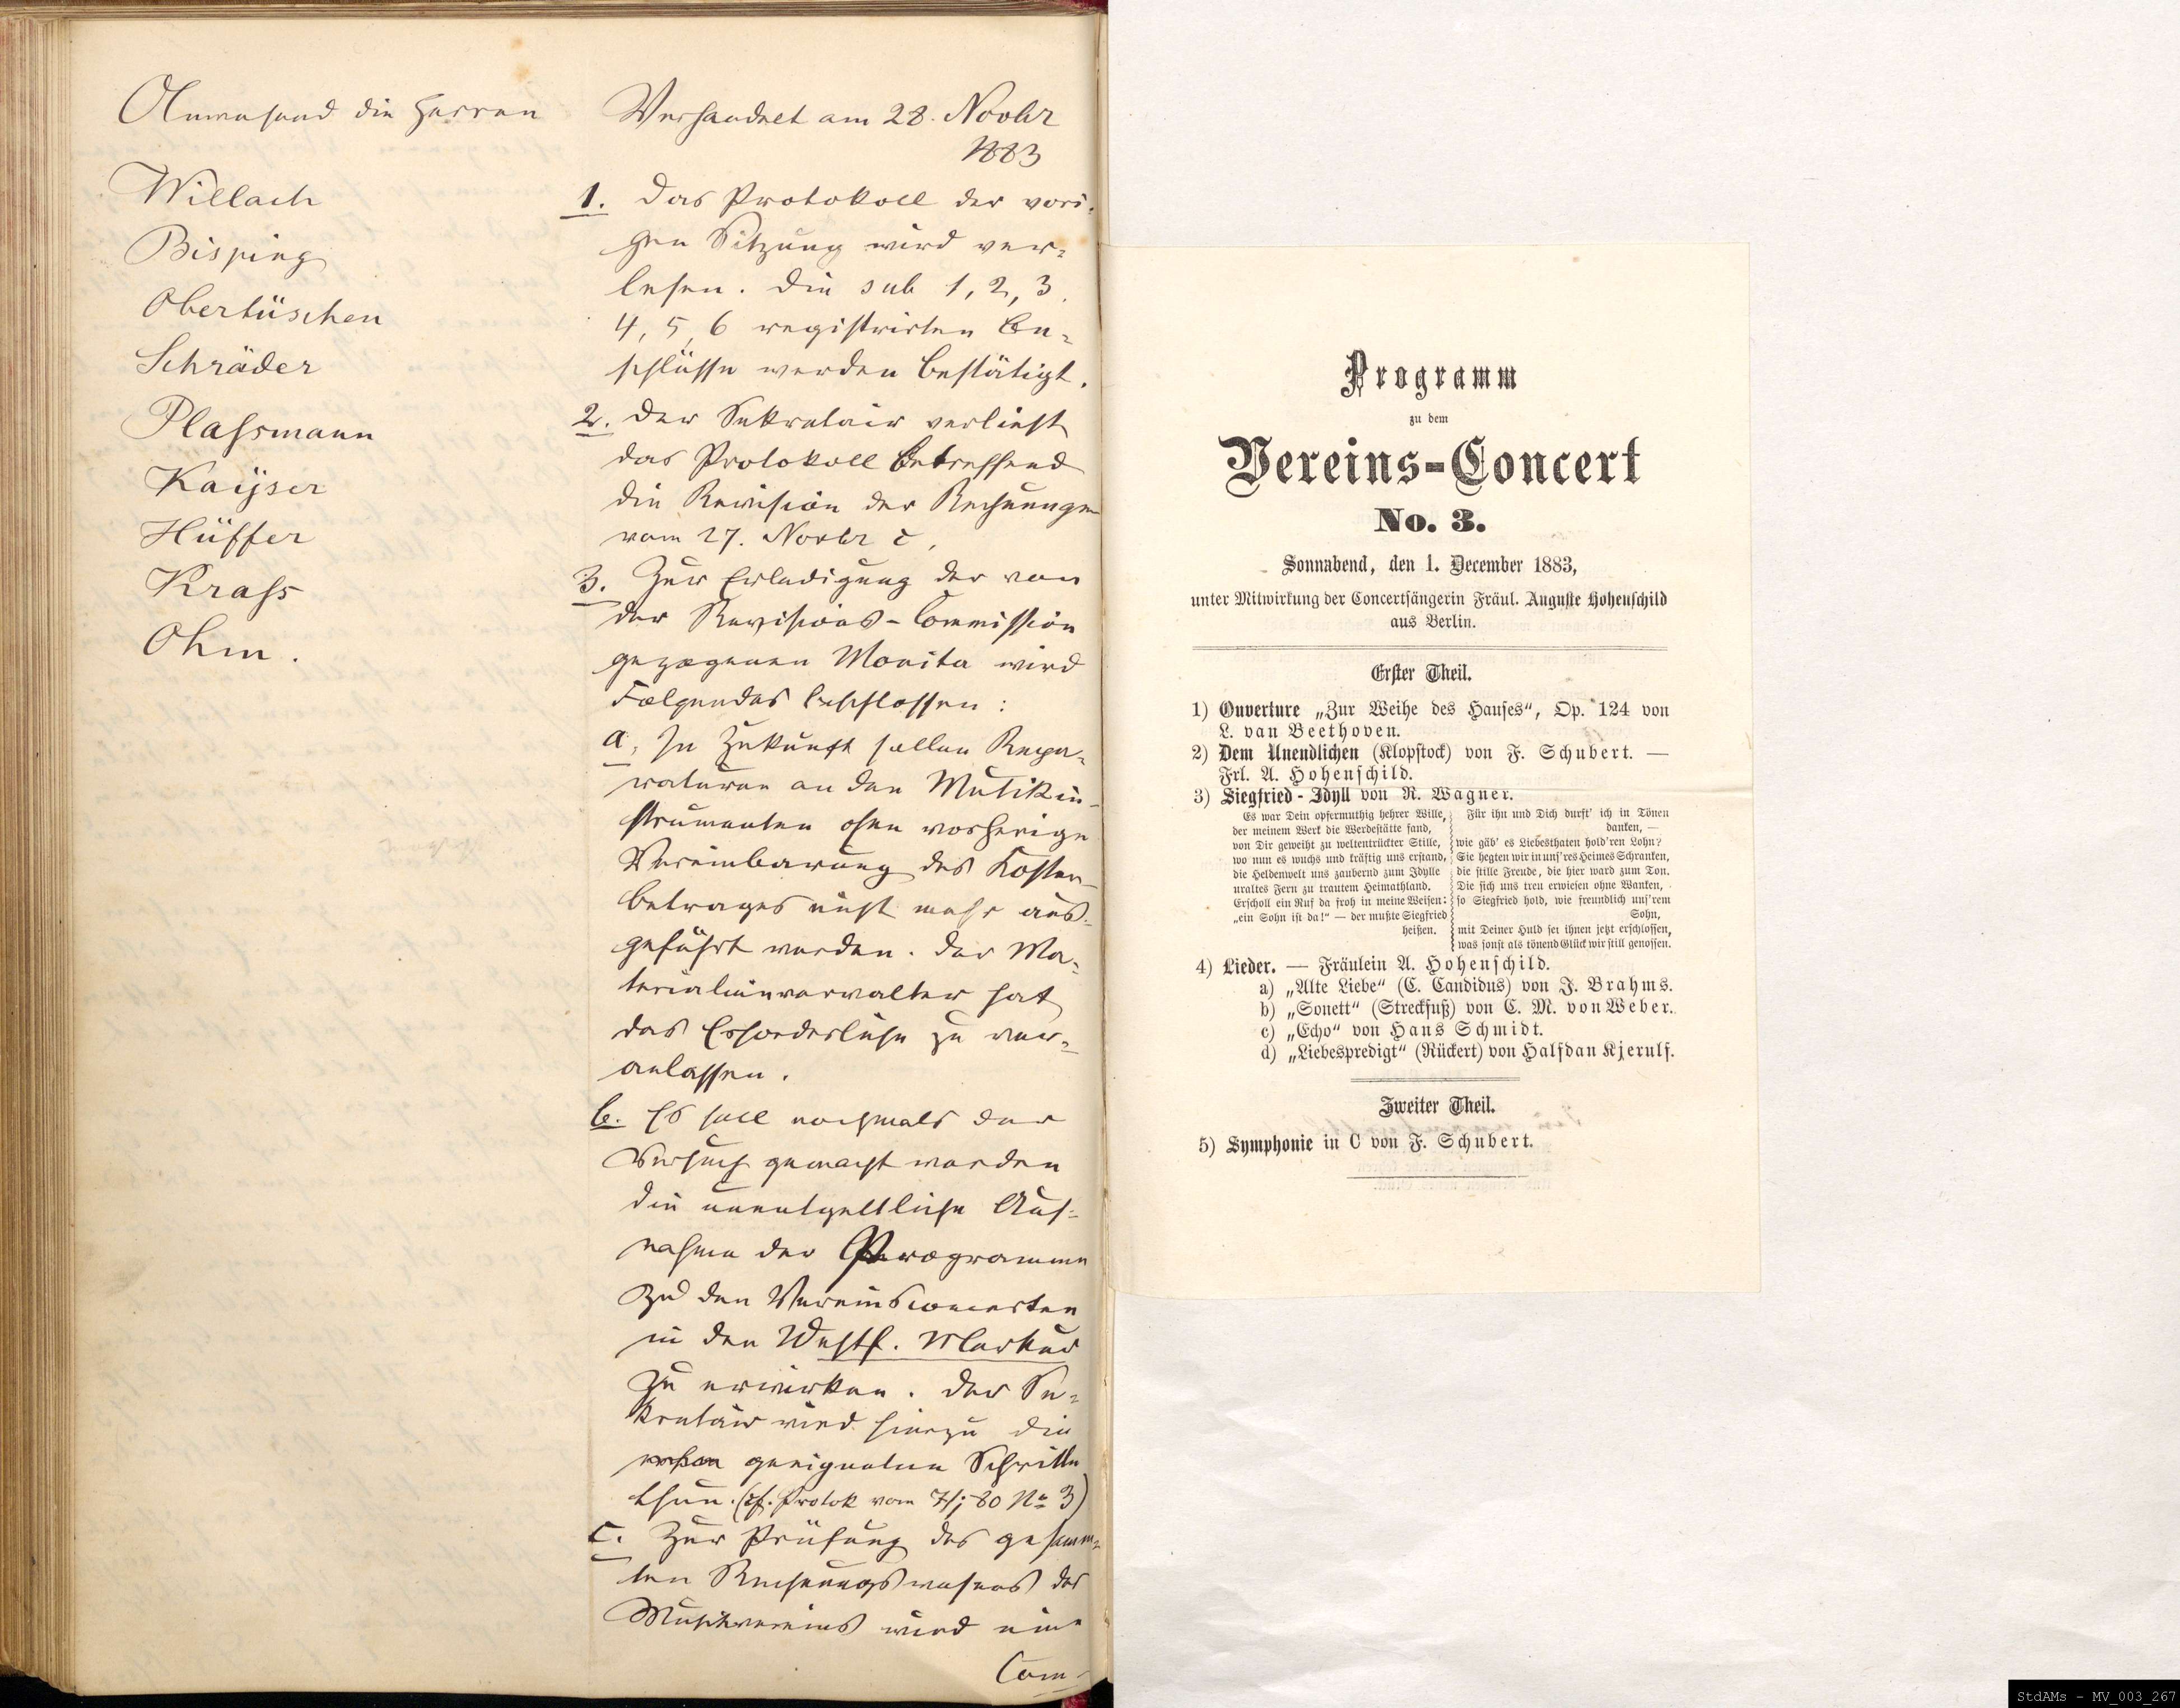 Anwesend die Herren
Willach
Bisping
Obertüschen
Schräder
Plaſsmann
Kaÿser
Hüffer
Kraſs
Ohm.
Verhandelt am 28. Novbr
1883
1. Das Protokoll der vori-
gen Sitzung wird ver-
lesen. Die sub 1, 2, 3,
4, 5, 6 registrirten Be-
schlüsse werden bestätigt.
2. Der Sekretair verliest
das Protokoll betreffend
die Revision der Rechnungen
vom 27. Novbr c.
3. Zur Erledigung der von
der Revisions-Commission
gezogenen Monita wird
Folgendes beschlossen:
a, In Zukunft sollen Repa-
raturen an den Musikin-
strumenten ohne vorherige
Vereinbarung des Kosten-
betrages nicht mehr aus-
geführt werden. Der Ma-
terialienverwalter hat
das Erforderliche zu ver-
anlassen.
b. Es soll nochmals der
Versuch gemacht werden
die unentgeltliche Auf-
nahme der Programme
zu den Vereinsconcerten
in den Westf. Merkur
zu erwirken. Der Se-
kretair wird hierzu die
geeigneten Schritte
thun. (cf. Protok vom 80 No 3)
c. Zur Prüfung des gesamm-
ten Rechnungswesens des
Musikvereins wird eine
Com-
Programm
zu dem
Vereins-Concert
No. 3.
Sonnabend, den 1. December 1883,
unter Mitwirkung der Concertsängerin Fräul. Auguste Hohenschild
aus Berlin.
Erster Theil.
1) Ouverture „Zur Weihe des Hauses“, Op. 124 von
L. van Beethoven.
2) Dem Unendlichen (Klopstock) von F. Schubert. —
Frl. A. Hohenschild.
3) Siegfried-Idyll von R. Wagner.
Es war Dein opfermuthig hehrer Wille,
der meinem Werk die Werdestätte fand,
von Dir geweiht zu weltentrückter Stille,
wo nun es wuchs und kräftig uns erstand,
die Heldenwelt uns zaubernd zum Idylle
uraltes Fern zu trautem Heimathland.
Erscholl ein Ruf da froh in meine Weisen:
„ein Sohn ist da!“ — der mußte Siegfried
heißen.
Für ihn und Dich durft' ich in Tönen
danken, —
wie gäb' es Liebesthaten hold'ren Lohn?
Sie hegten wir in uns'res Heimes Schranken,
die stille Freude, die hier ward zum Ton.
Die sich uns treu erwiesen ohne Wanken,
so Siegfried hold, wie freundlich uns'rem
Sohn,
mit Deiner Huld sei ihnen jetzt erschlossen,
was sonst als tönend Glück wir still genossen.
4) Lieder. — Fräulein A. Hohenschild.
a) „Alte Liebe“ (C. Candidus) von J. Brahms.
b) „Sonett“ (Streckfuß) von C. M. von Weber.
c) „Echo“ von Hans Schmidt.
d) „Liebespredigt“ (Rückert) von Halfdan Kjerulf.
Zweiter Theil.
5) Symphonie in C von F. Schubert.
StdAMs - MV_003_267